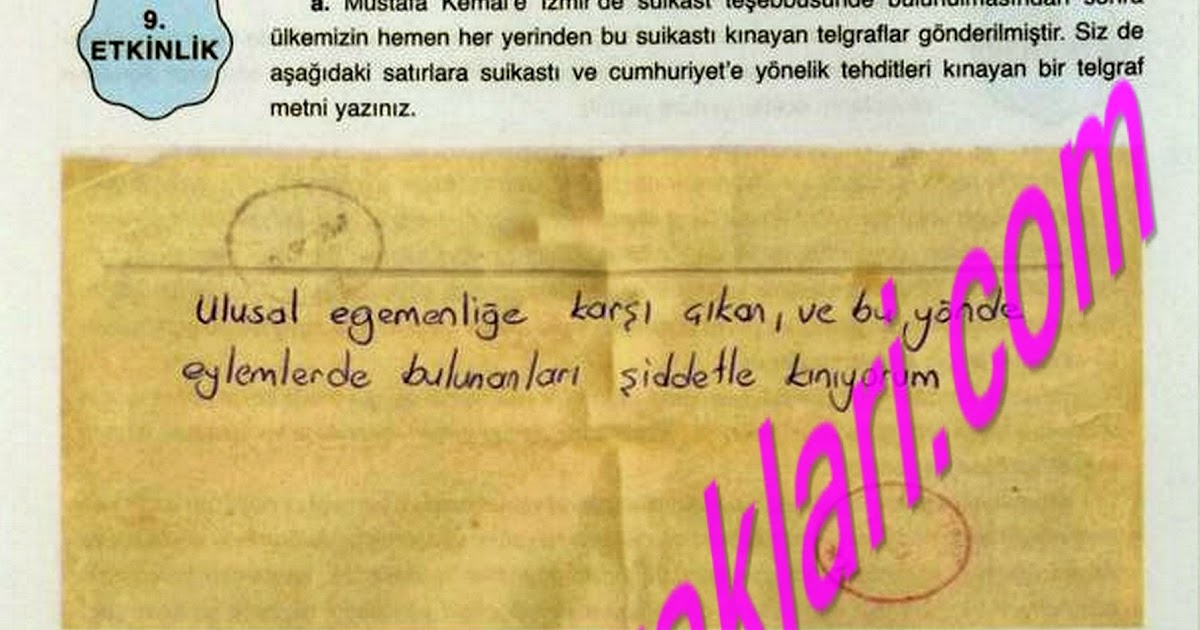 9.
ETKİNLİK
a. Mustafa Kemal'e İzmir'de suikast teşebbüsünde bulunulmasından sonra
ülkemizin hemen her yerinden bu suikastı kınayan telgraflar gönderilmiştir. Siz de
aşağıdaki satırlara suikastı ve cumhuriyet'e yönelik tehditleri kınayan bir telgraf
metni yazınız.
Ulusal egemenliğe karşı çıkan, ve bu yönde
eylemlerde bulunanları şiddetle kınıyorum
akları.com